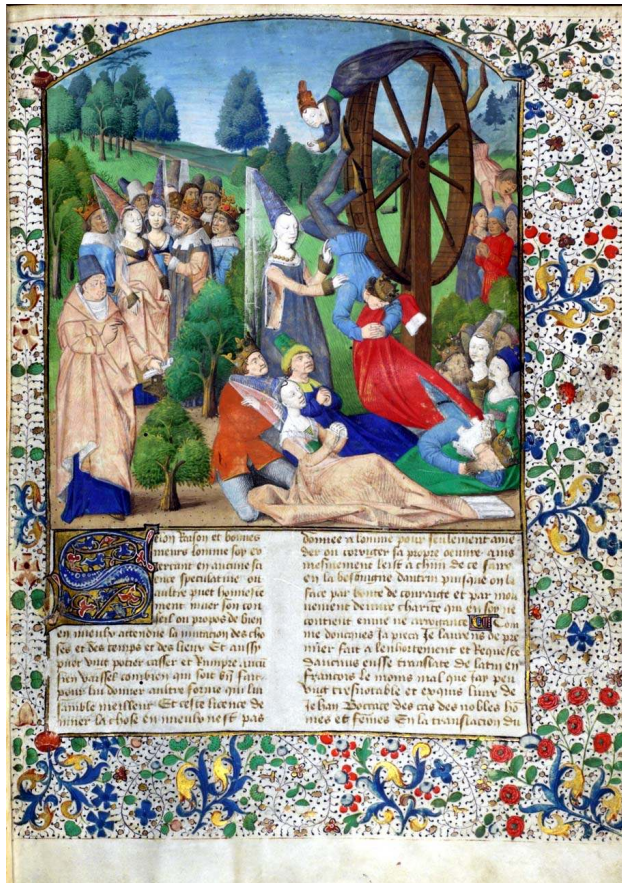 Selon Raison et bonnes
meurs lomme soy ex
ercant en aucune sci
ence speculatiue ou
aultre puet honneste
ment muer son con
seil ou propos de bien
en mieulx attendue la mutacion des cho
ses et des temps et des lieux Et aussi
puet vng potier casser et Rompre aucu
sien vaissel combien quil soit bn̄ fait
pour lui donner aultre forme qui lui
samble meilleur Et ceste licence de
muer la chose en mieulx nest pas
donnee a lomme pour seulement amē
der ou coriger sa propre oeuure ains
mesmement leist a chūn de ce faire
en la besongne dautrui puisque on le
face par bonte de couraige et par mou
uement de vraie charite qui en soy ne
contient enuie ne arrogance Com
me doncques Ja pieca Je laurens de pre
mier fait a lenhortement et Requeste
daucuns eusse translate de latin en
francois le moins mal que Jay peu
vng tresnotable et exquis liure de
Jehan Boccace des cas des nobles ho
mes et femes En la translacion du